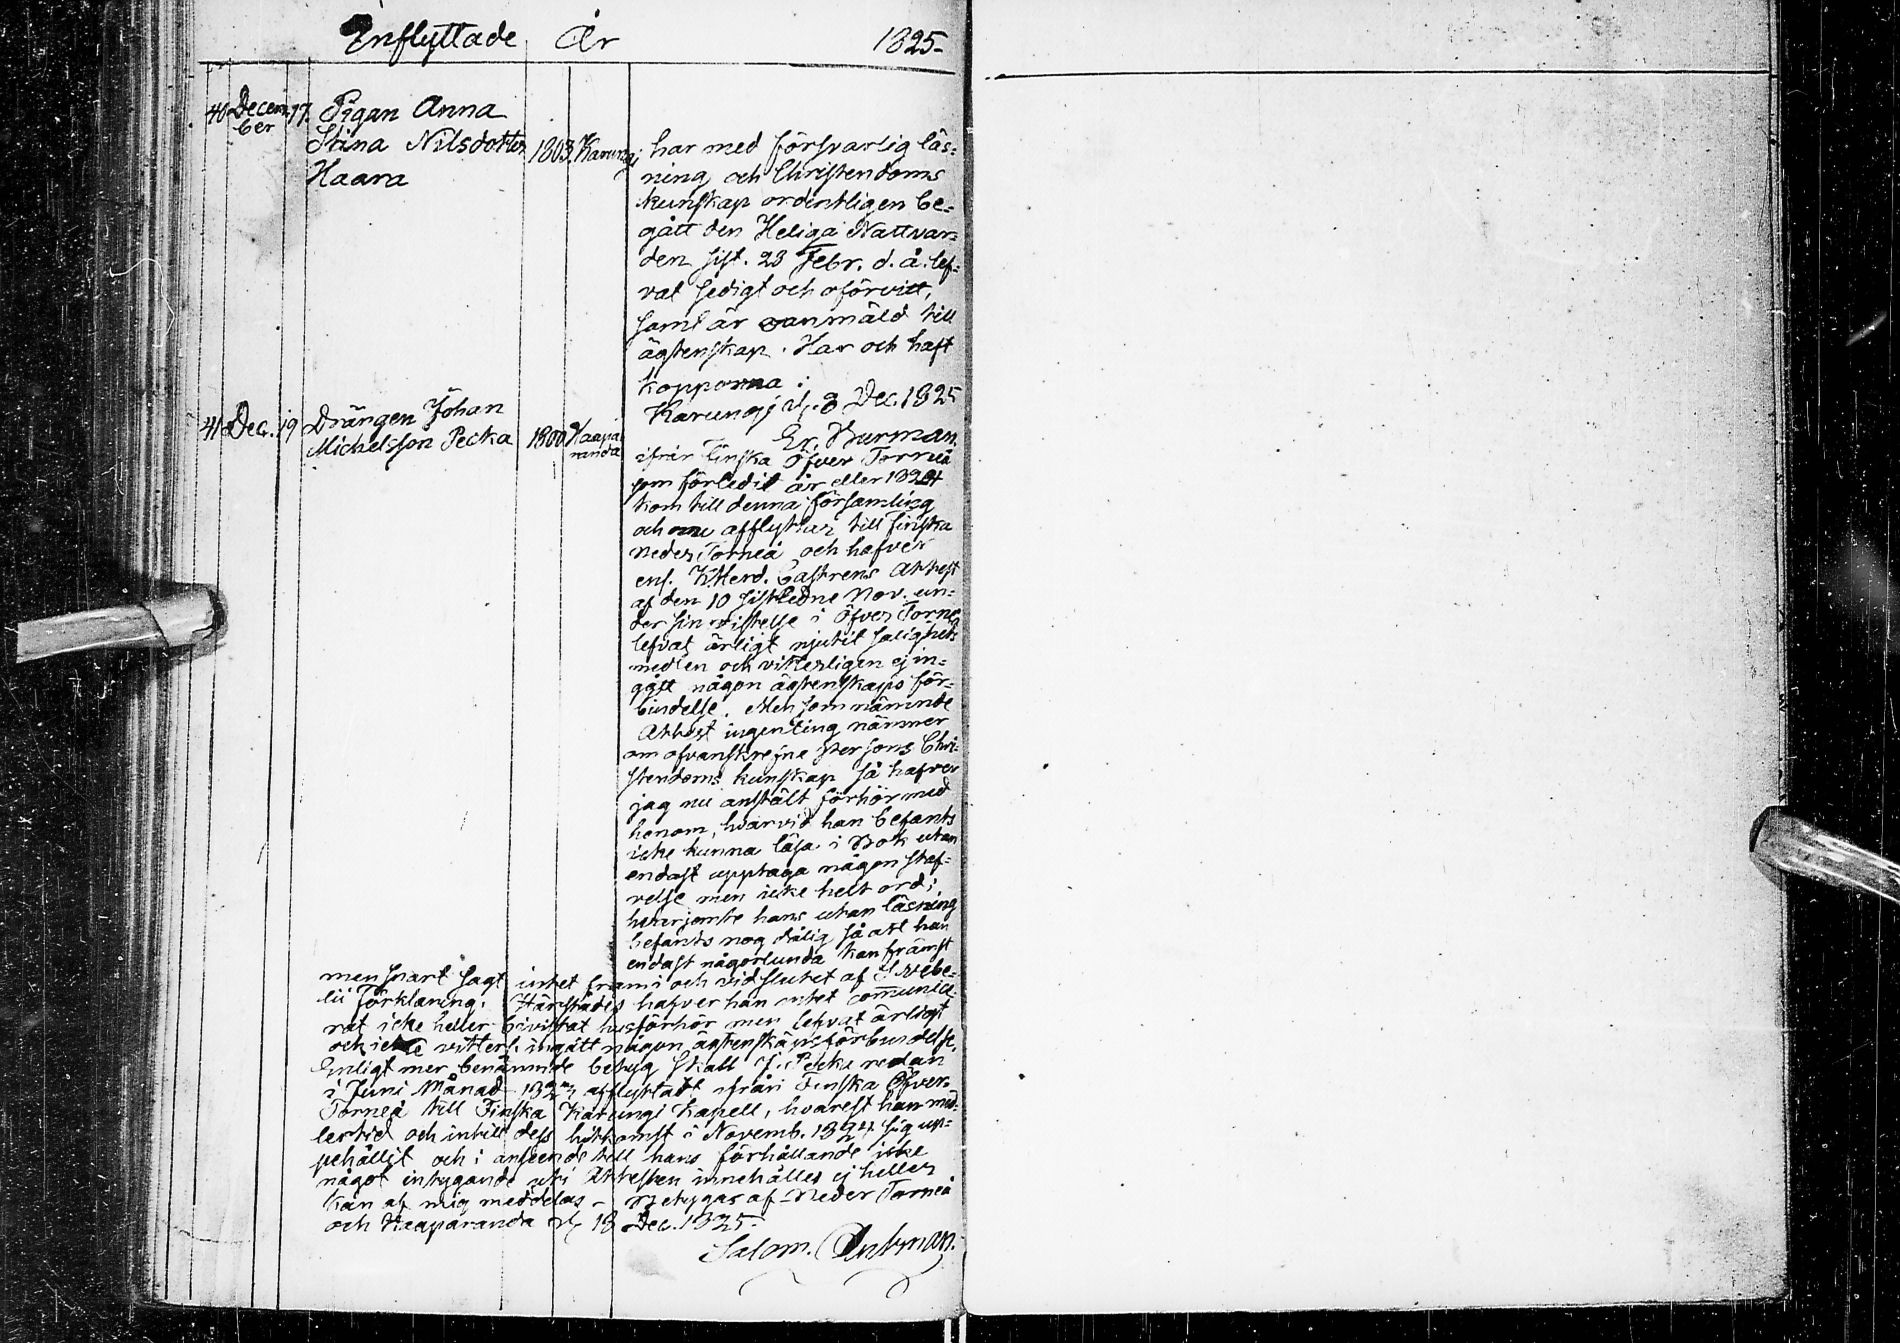 Inflyttade År 1825-
40 Decem- 17. Pigan Anna
ber
Stina Nilsdotter 1803. Karungi
Haara
har med försvarlig läs-
ning och Christendoms
kunskap ordentligen be-
gått den Heliga Nattvar-
den sist. 23 Febr. d. å. lef-
vat sedigt och oförvitt,
samt är anmäld till
ägtenskap. Har och haft
kopporna.
Karungi d. 8 Dec. 1825
Er. Burman.
41 Dec. 19 Drängen Johan
Michelsson Pecka 1800 Haapa
randa
ifrån Finska Öfver Torneå
som förledit år eller 1824
kom till denna församling
och nu afflyttar till Finska
Neder Torneå och hafver
enl. Castrens Attest
af den 10 sistledne Nov. un-
der sin vistelse i Öfver Torneå
lefvat ärligt njutit salighets
medlen och vitterligen ej in-
gått någon ägtenskaps för-
bindelse. Men som nämnde
Attest ingenting nämner
om ofvanskrefne Persons Chri-
stendoms kunskap så hafver
jag nu anstält förhör med
honom, hvarvid han befants
icke kunna läsa i Bok utan
endast upptaga någon staf-
velse men icke helt ord;
hvarjemte hans utan läsning
befants nog dålig så att han
endast någorlunda kan främst
men snart sagt intet fram i och vid slutet af Svebe-
lii Förklaring. Härstädes hafver han intet com̄unice-
rat icke heller bivistat husförhör men lefvat ärligt
och icke vitterl. ingått någon ägtenskapsförbindelse.
Enligt mer benämnde betyg skall J. Pecka redan
i Juni Månad 1824 afflyttat ifrån Finska Öfver
Torneå till Finska Karungi Kapell, hvarest han med-
lertid och intill dess hitkomst i Novemb. 1824 sig up-
pehållit och i anseende till hans förhållande icke
något intygande uti Attesten innehålles ej heller
kan af mig meddelas - Betygas af Neder Torneå
och Haaparanda d. 18 Dec. 1825.
Salom. Antman.